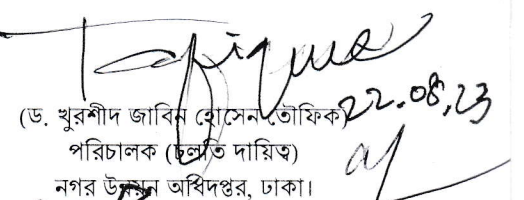 22.08.23
(ড. খুরশীদ জাবিন হোসেন তৌফিক)
পরিচালক (চলতি দায়িত্ব)
নগর উন্নয়ন অধিদপ্তর, ঢাকা।